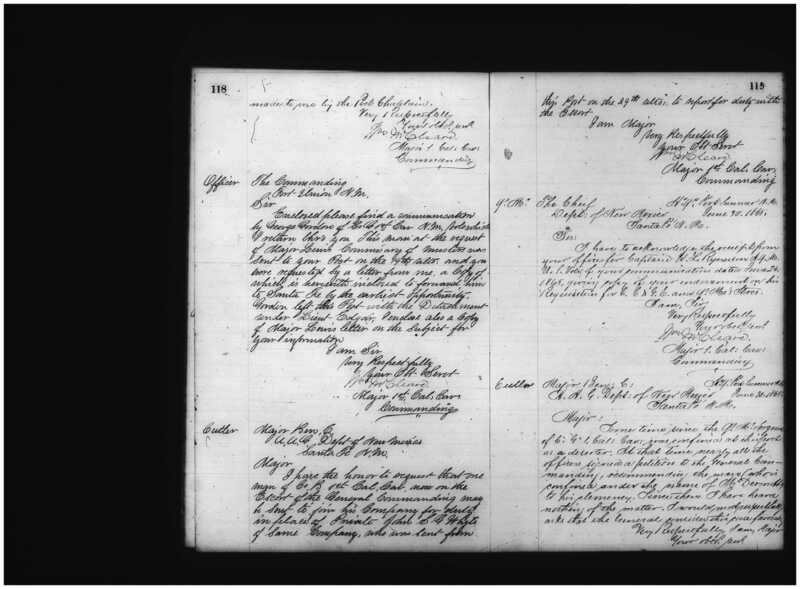 118
made to me by the Post Chaplain.
Very Respectfully
Your Obt
Wm McCleave
Major 1. Cal. Cav.
Commanding
Officer The Commanding
Fort Union N.M.
Sir
Enclosed please find a communication
by George Gordon of Co B 1st Cav N.M. Vols which
I return thro you This man at the request
of Major Lewis Commissary of musters was
sent to your Post on the ulto. and you
were requested by a letter from me, a Copy of
which is herewith inclosed to forward him
to Santa Fe by the earliest opportunity.
Gordon left this Post with the Detachment
under Lieut Edgar, I enclose also a Copy
of Major Lewis letter on the Subject for
your information
I am Sir
Very Respectfully
Your Obt Servt
Wm McCleave
Major 1st Cal. Cav.
Commanding
Cutler Major Ben. C.
A.A.G. Dept of New Mexico
Santa Fe N.M.
Major
I have the honor to request that one
man of Co. B 1st Cal. Cav. now on the
Escort of the General Commanding may
be sent to join his Company for duty
in place of Private John S. White
of Same Company, who was sent from
119
this Post on the 29th ulto. to report for duty with
the Escort.
I am Major
Very Respectfully
Your Obt Servt
Wm McCleave
Major 1st Cal. Cav.
Commanding
Q. M. The Chief
Dept. of New Mexico
Santa Fe N.M.
Hd. Qrs. Fort Sumner N.M.
June 30, 186
Sir:
I have to acknowledge the receipt from
your office for Captain
U.S. Vols of your communication dated
giving copy of your endorsement on his
Requisition for C. C & G. E. and Stores.
I am, Sir,
Very Respectfully
Your obt
Wm McCleave
Major 1. Cal. Cav.
Commanding
Cutler Major Benj. C.
A. A. G. Dept. of New Mexico
Santa Fe N.M.
Hd. Qrs. Fort Sumner N.M.
June 30, 186
Major:
Some time since the
of Co. 1 Cal. Cav. was confined at this Post
as a deserter. At that time nearly all the
officers signed a petition to the General Com-
manding, recommending the man, who is
confined under the name of
to his clemency. Since then I have heard
nothing of the matter. I would most respectfully
ask that the General consider this case favorably
Very Respectfully I am, Major
Your obt.